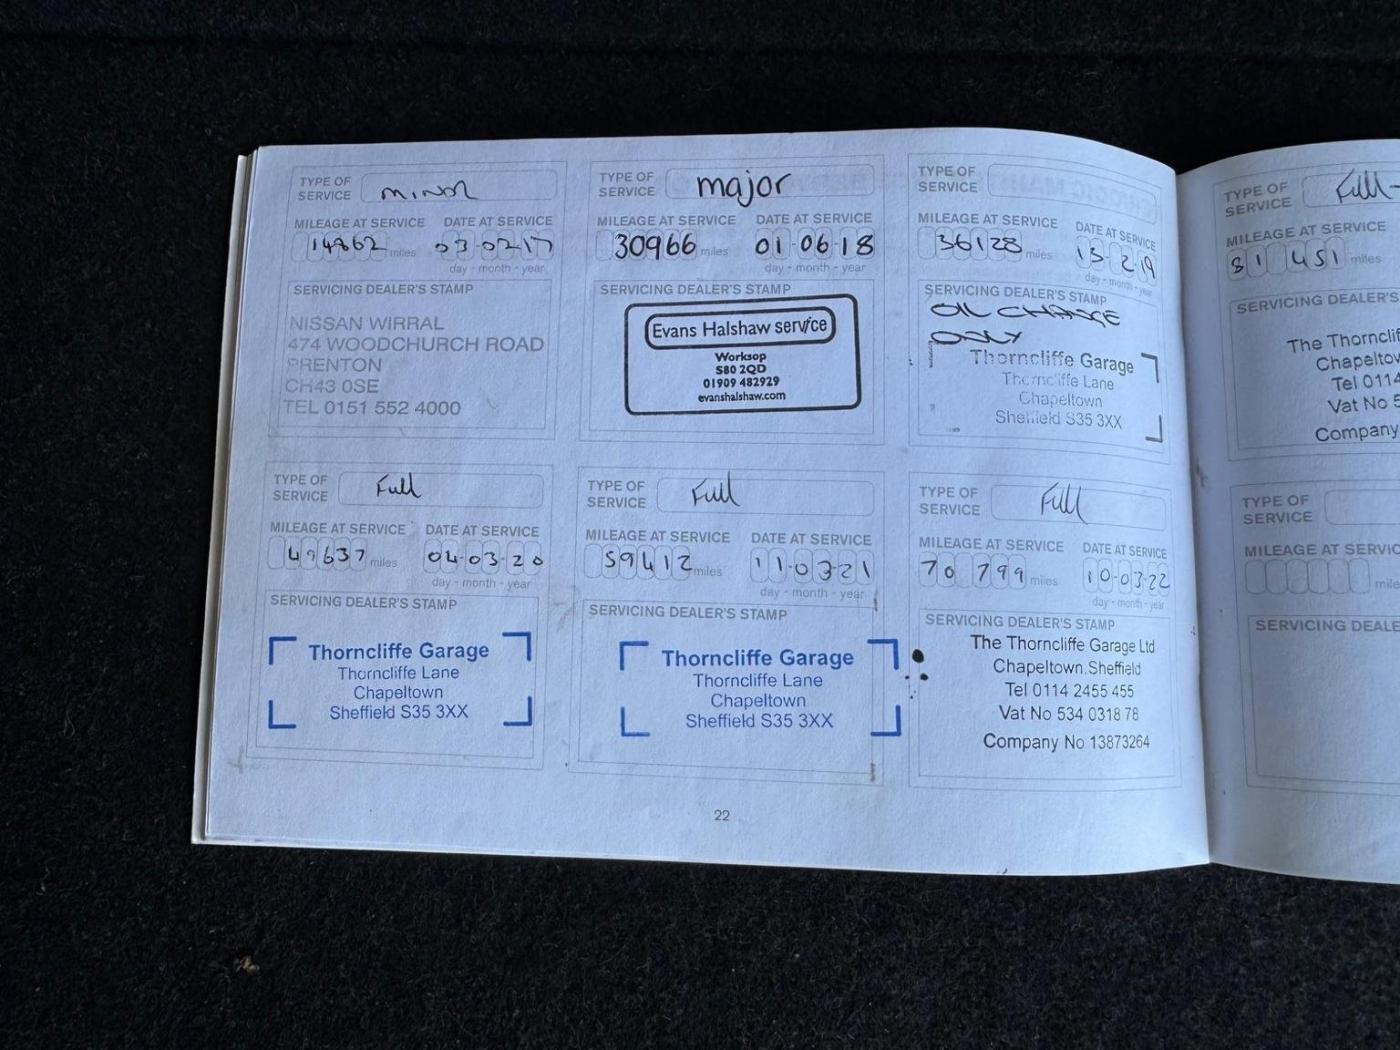 TYPE OF SERVICE minor
MILEAGE AT SERVICE DATE AT SERVICE
14862 miles 03-02-17
day - month - year
SERVICING DEALER'S STAMP
NISSAN WIRRAL
474 WOODCHURCH ROAD
PRENTON
CH43 0SE
TEL 0151 552 4000
TYPE OF SERVICE major
MILEAGE AT SERVICE DATE AT SERVICE
30966 miles 01-06-18
day - month - year
SERVICING DEALER'S STAMP
Evans Halshaw service
Worksop
S80 2QD
01909 482929
evanshalshaw.com
TYPE OF SERVICE
MILEAGE AT SERVICE DATE AT SERVICE
36128 miles 13-2-19
day - month - year
SERVICING DEALER'S STAMP
OIL CHANGE
ONLY
Thorncliffe Garage
Thorncliffe Lane
Chapeltown
Sheffield S35 3XX
TYPE OF SERVICE Full
MILEAGE AT SERVICE DATE AT SERVICE
49637 miles 04-03-20
day - month - year
SERVICING DEALER'S STAMP
Thorncliffe Garage
Thorncliffe Lane
Chapeltown
Sheffield S35 3XX
TYPE OF SERVICE Full
MILEAGE AT SERVICE DATE AT SERVICE
59412 miles 11-03-21
day - month - year
SERVICING DEALER'S STAMP
Thorncliffe Garage
Thorncliffe Lane
Chapeltown
Sheffield S35 3XX
TYPE OF SERVICE Full
MILEAGE AT SERVICE DATE AT SERVICE
70799 miles 10-03-22
day - month - year
SERVICING DEALER'S STAMP
The Thorncliffe Garage Ltd
Chapeltown.Sheffield
Tel 0114 2455 455
Vat No 534 0318 78
Company No 13873264
22
TYPE OF SERVICE Full
MILEAGE AT SERVICE
81451 miles
SERVICING DEALER'S
The Thornclif
Chapeltow
Tel 0114
Vat No 5
Company
TYPE OF SERVICE
MILEAGE AT SERVIC
mile
SERVICING DEALE